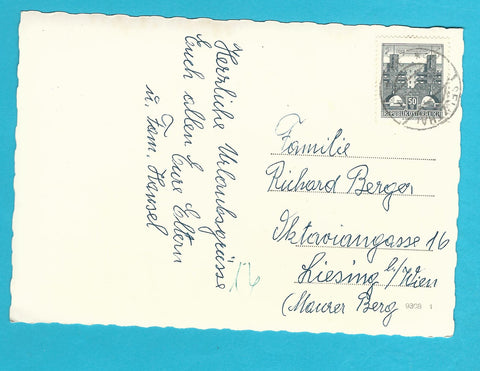 Herzliche Urlaubsgrüsse
Euch allen
Eure Eltern
u. Fam. Hensel
16
50
REPUBLIK ÖSTERREICH
Familie
Richard Berger
Oktaviangasse 16
Liesing b/Wien
(Maurer Berg
9308 1